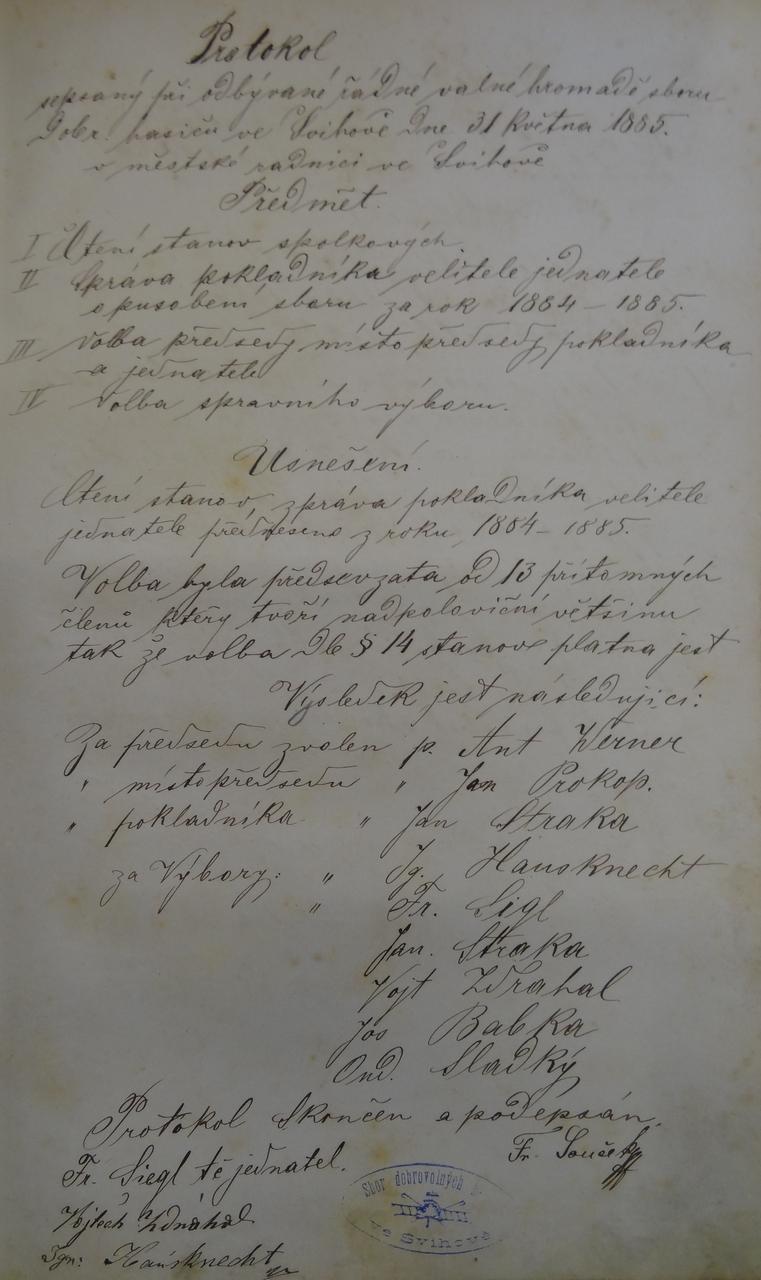 Protokol
sepsaný při odbývané řádné valné hromadě sboru
Dobr. hasičů ve Švihově dne 31 května 1885.
v městské radnici ve Švihově
Předmět.
I Čtení stanov spolkových.
II Správa pokladníka velitele jednatele
o pusobení sboru za rok 1884 – 1885.
III Volba předsedy místopředsedy pokladníka
a jednatele
IV Volba spravního výboru.
Usnešení.
Čtení stanov, zpráva pokladníka velitele
jednatele přednesena z roku 1884 – 1885.
Volba byla předsevzata od 13 přítomných
členů který tvoří nadpoloviční většinu
tak že volba dle § 14 stanov platna jest
Výsledek jest následující:
Za předsedu zvolen p. Ant Werner
" místopředsedu " Jan Prokop.
" pokladníka " Jan Straka
za Výbory: " Ig. Hausknecht
" Fr. Sigl
Jan. Straka
Vojt Zdrahal
Jos Babka
Ond. Sladký
Protokol skončen a podepsán.
Fr. Siegl tč jednatel. Fr. Souček
Vojtěch Zdráhal
Ign: Hausknecht
Sbor dobrovolných h
ve Švihově